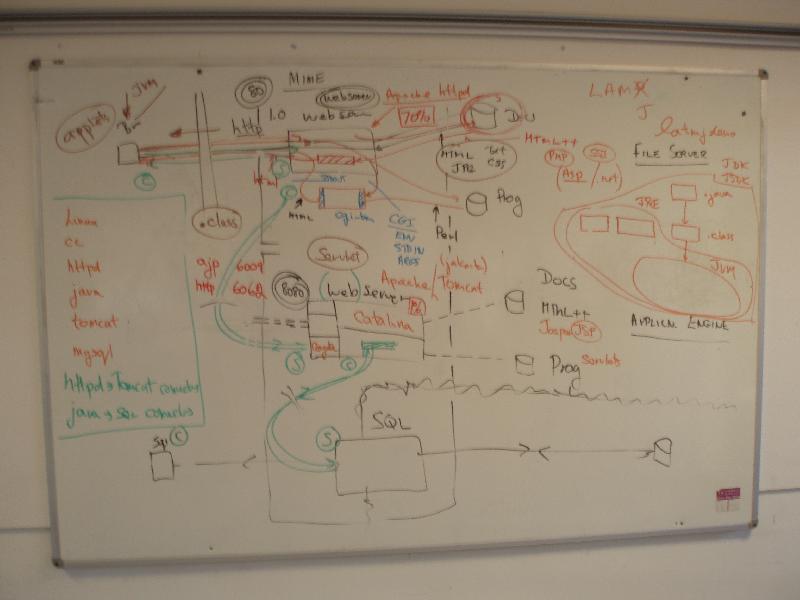 JVM
applets
80
MIME
http
1.0
webserver
webserver
Apache httpd
70%
LAMX
J
Docs
HTML Txt
JPG CSS
HTML++
PHP
SSI
Asp / .net
FILE SERVER
JDK
JSDK
.java
JRE
.class
JVM
APPLICN. ENGINE
C
S
html
C
.class
HTML
cgi-bin
CGI
ENV
STDIN
ARGS
Prog
Perl
Linux
cc
httpd
java
tomcat
mysql
httpd → Tomcat connector
java → SQL connector
ajp 6009
http
Servlet
8080
webserver
Apache / Tomcat
(jakarta)
Catalina
S
C
Docs
HTML++
Jasper JSP
Prog Servlets
SQL
S
Sql
C